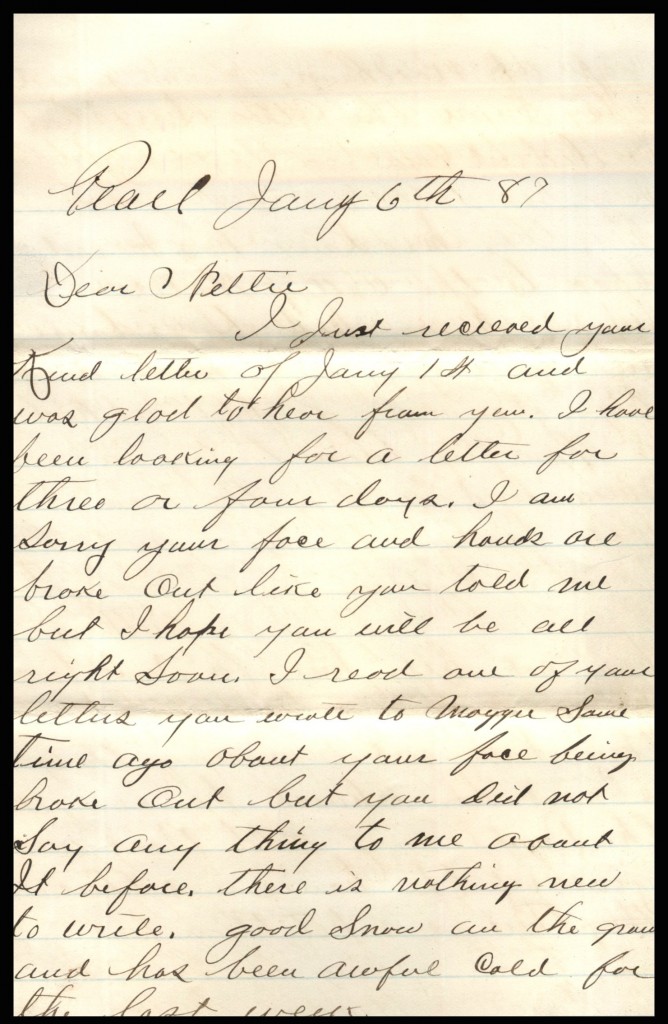 Pearl Jany 6th 87
Dear Nettie
I Just recieved your
Kind letter of Jany 1st and
was glad to hear from you. I have
been looking for a letter for
three or four days. I am
Sorry your face and hands are
broke Out like you told me
but I hope you will be all
right Soon. I read one of your
letters you wrote to Maggie Some
time ago about your face being
broke Out but you did not
Say any thing to me about
It before. there is nothing new
to write. good Snow on the
and has been awful Cold for
the last week.